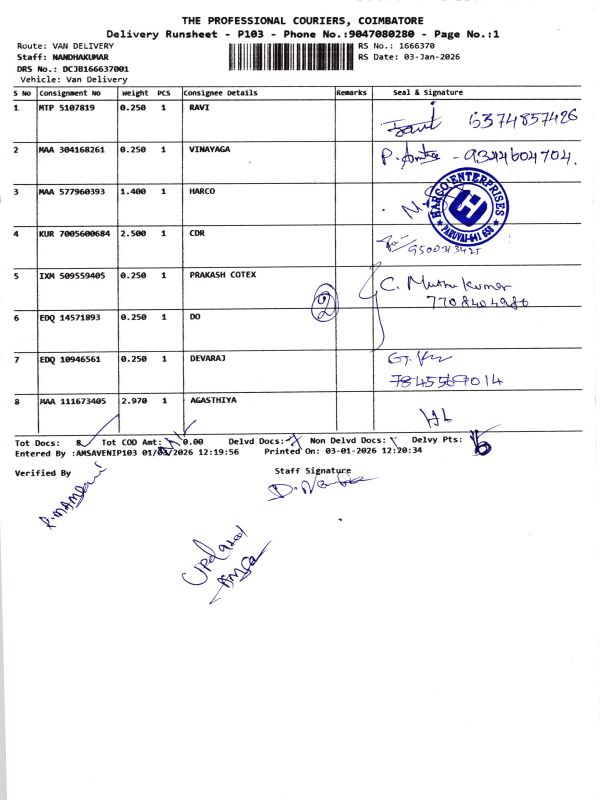 THE PROFESSIONAL COURIERS, COIMBATORE
Delivery Runsheet - P103 - Phone No.:9047080280 - Page No.:1
Route: VAN DELIVERY
RS No.: 1666370
Staff: NANDHAKUMAR
RS Date: 03-Jan-2026
DRS No.: DCJB166637001
Vehicle: Van Delivery
S No Consignment No Weight PCS Consignee Details Remarks Seal & Signature
1 MTP 5107819 0.250 1 RAVI
6374857426
2 MAA 304168261 0.250 1 VINAYAGA
P. - 9344604704.
3 MAA 577960393 1.400 1 HARCO
HARCO ENTERPRISES
PARUVAI-641 658
4 KUR 7005600684 2.500 1 CDR
9500313425
5 IXM 509559405 0.250 1 PRAKASH COTEX
C. Muthu Kumar
7708404986
2
6 EDQ 14571893 0.250 1 DO
7 EDQ 10946561 0.250 1 DEVARAJ
7845569014
8 MAA 111673405 2.970 1 AGASTHIYA
Tot Docs: 8 Tot COD Amt: 0.00 Delvd Docs: 7 Non Delvd Docs: 1 Delvy Pts: 6
Entered By :AMSAVENIP103 01/03/2026 12:19:56 Printed On: 03-01-2026 12:20:34
Verified By
Staff Signature